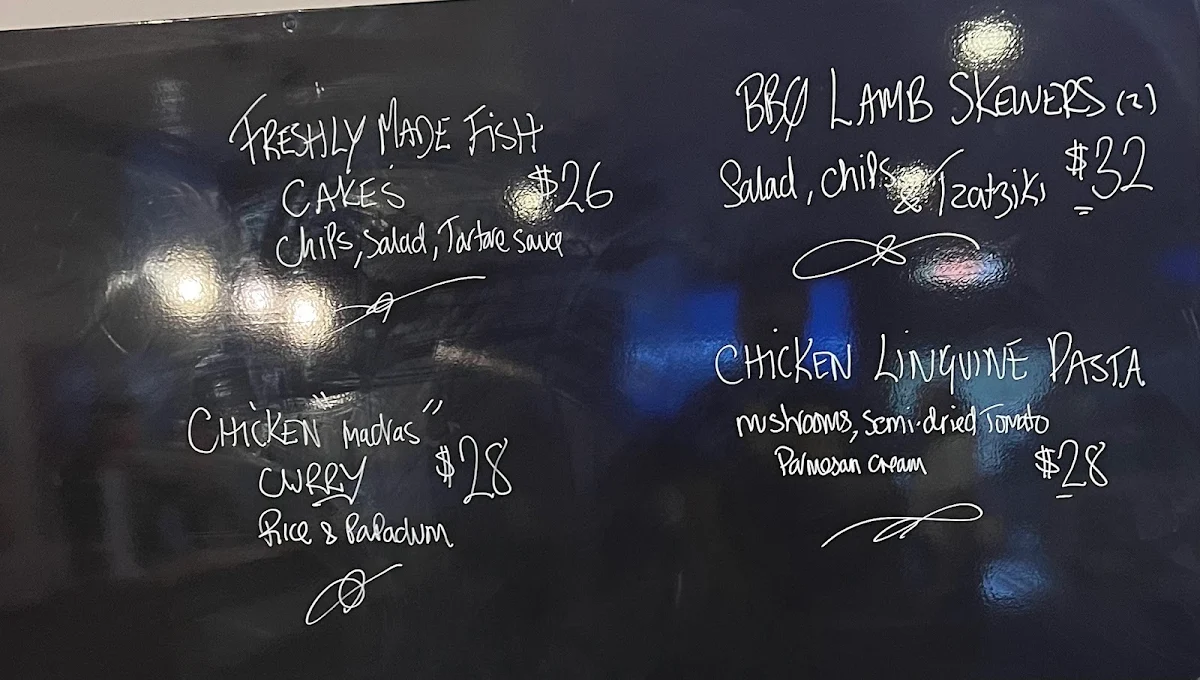 FRESHLY MADE FISH
CAKES $26
Chips, Salad, Tartare Sauce
CHICKEN "Madras"
CURRY $28
Rice & Papadum
BBQ LAMB SKEWERS (2)
Salad, Chips & Tzatziki $32
CHICKEN LINGUINE PASTA
Mushrooms, Semi-dried Tomato
Parmesan Cream $28